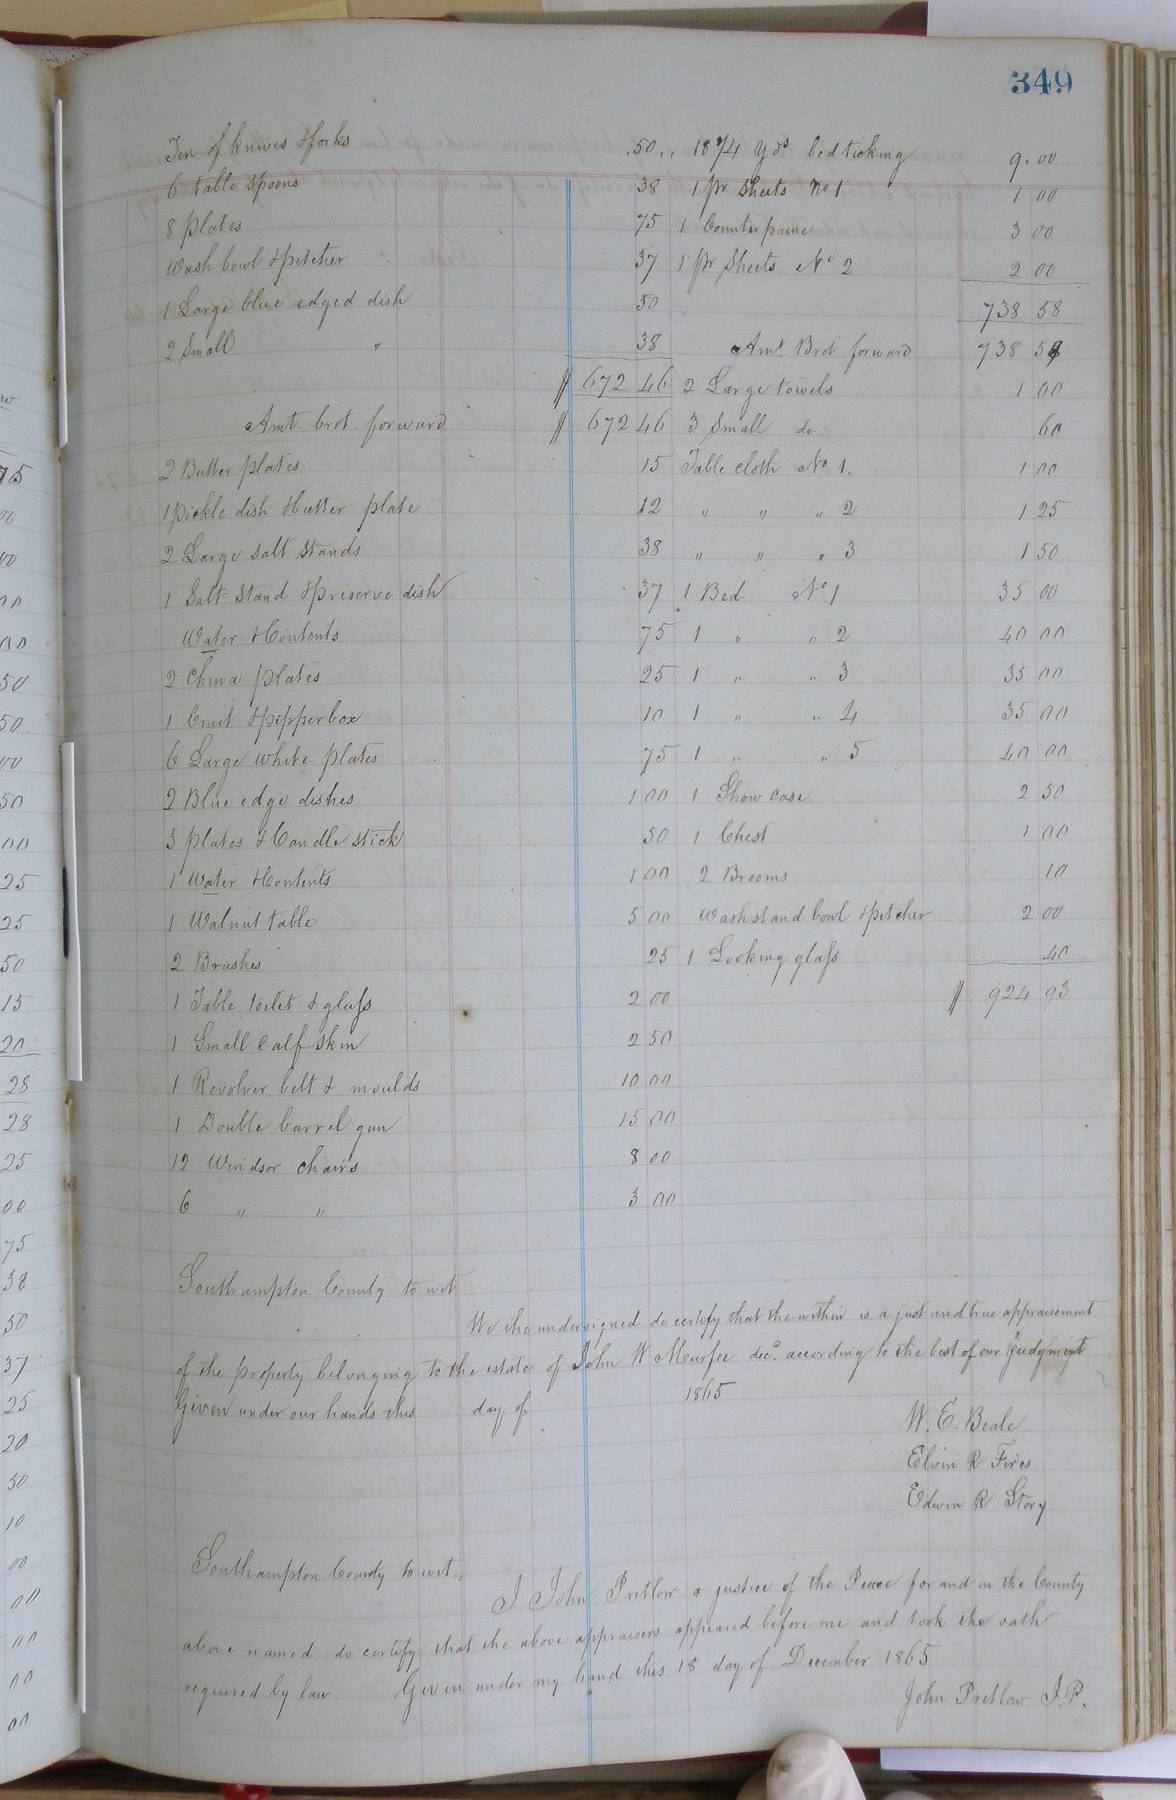 349
Tin of knives & forks .50..
6 table spoons 38
8 plates 75
Wash bowl & pitcher 37
1 Large blue edged dish 50
2 Small " 38
$ 672 46
Amt. brot. forward $ 672 46
2 Butter plates 15
1 pickle dish & butter plate 12
2 Large salt stands 38
1 Salt stand & preserve dish 37
Water & Contents 75
2 China plates 25
1 Cruit & pipper box 10
6 Large white plates 75
2 Blue edge dishes 1 00
3 plates & Candle stick 50
1 Water & Contents 1 00
1 Walnut table 5 00
2 Brushes 25
1 Table toilet & glass 2 00
1 Small calf skin 2 50
1 Revolver, belt & moulds 10 00
1 Double barrel gun 15 00
12 Windsor chairs 8 00
6 " " 3 00
18 3/4 Yds bed ticking 9.00
1 pr sheets No 1 1 00
1 Counterpaine 3 00
1 pr Sheets No 2 2 00
738 58
Amt. Brot forward 738 58
2 Large towels 1 00
3 Small do. 60
Table cloth No 1. 1 00
" " " 2 1 25
" " " 3 1 50
1 Bed No 1 35 00
1 " " 2 40 00
1 " " 3 35 00
1 " " 4 35 00
1 " " 5 40 00
1 Show case 2 50
1 Chest 1 00
2 Brooms 10
Washstand bowl & pitcher 2 00
1 Looking glass 40
$ 924 93
Southampton County to wit
We the undersigned do certify that the within is a just and true appraisement
of the property belonging to the estate of John W Murfee decd. according to the best of our judgment
Given under our hands this day of 1865.
W. E. Beale
Elvin R
Edwin R Story
Southampton County to wit..
I John Pretlow a justice of the Peace for and in the County
above named do certify that the above appraisers appeared before me and took the oath
required by law. Given under my hand this 18 day of December 1865
John Pretlow J.P.